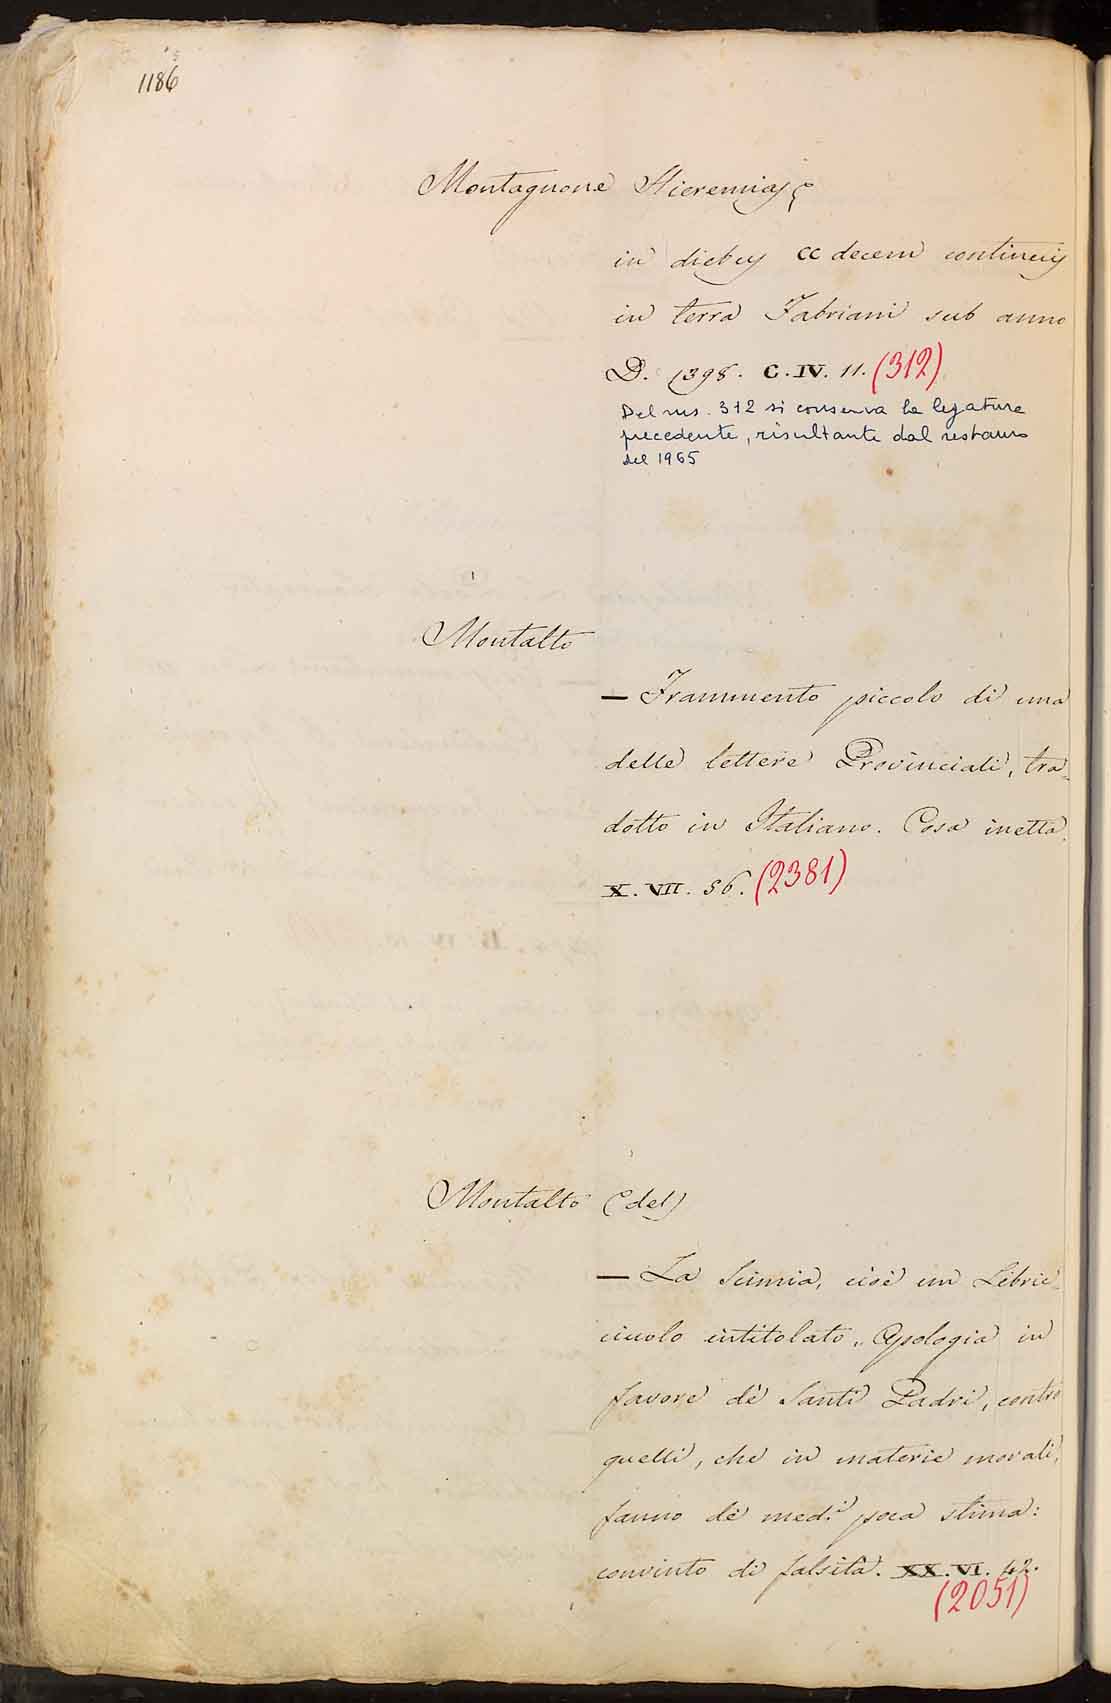 1186
Montagnone Hieremias
in diebus cc decem continuis
in terra Fabriani sub anno
D. 1398. C. IV. 11. (312)
Del ms. 312 si conserva la legatura
precedente, risultante dal restauro
del 1965
Montalto
— Frammento piccolo di una
delle lettere Provinciali, tra-
dotto in Italiano. Cosa inetta.
X. VII. 56. (2381)
Montalto (del)
— La Scimia, cioè un Libric-
ciuolo intitolato „ Apologia in
favore dè Santi Padri, contro
quelli, che in materie morali,
fanno dè med.i poca stima:
convinto di falsità. XX. VI. 42.
(2051)